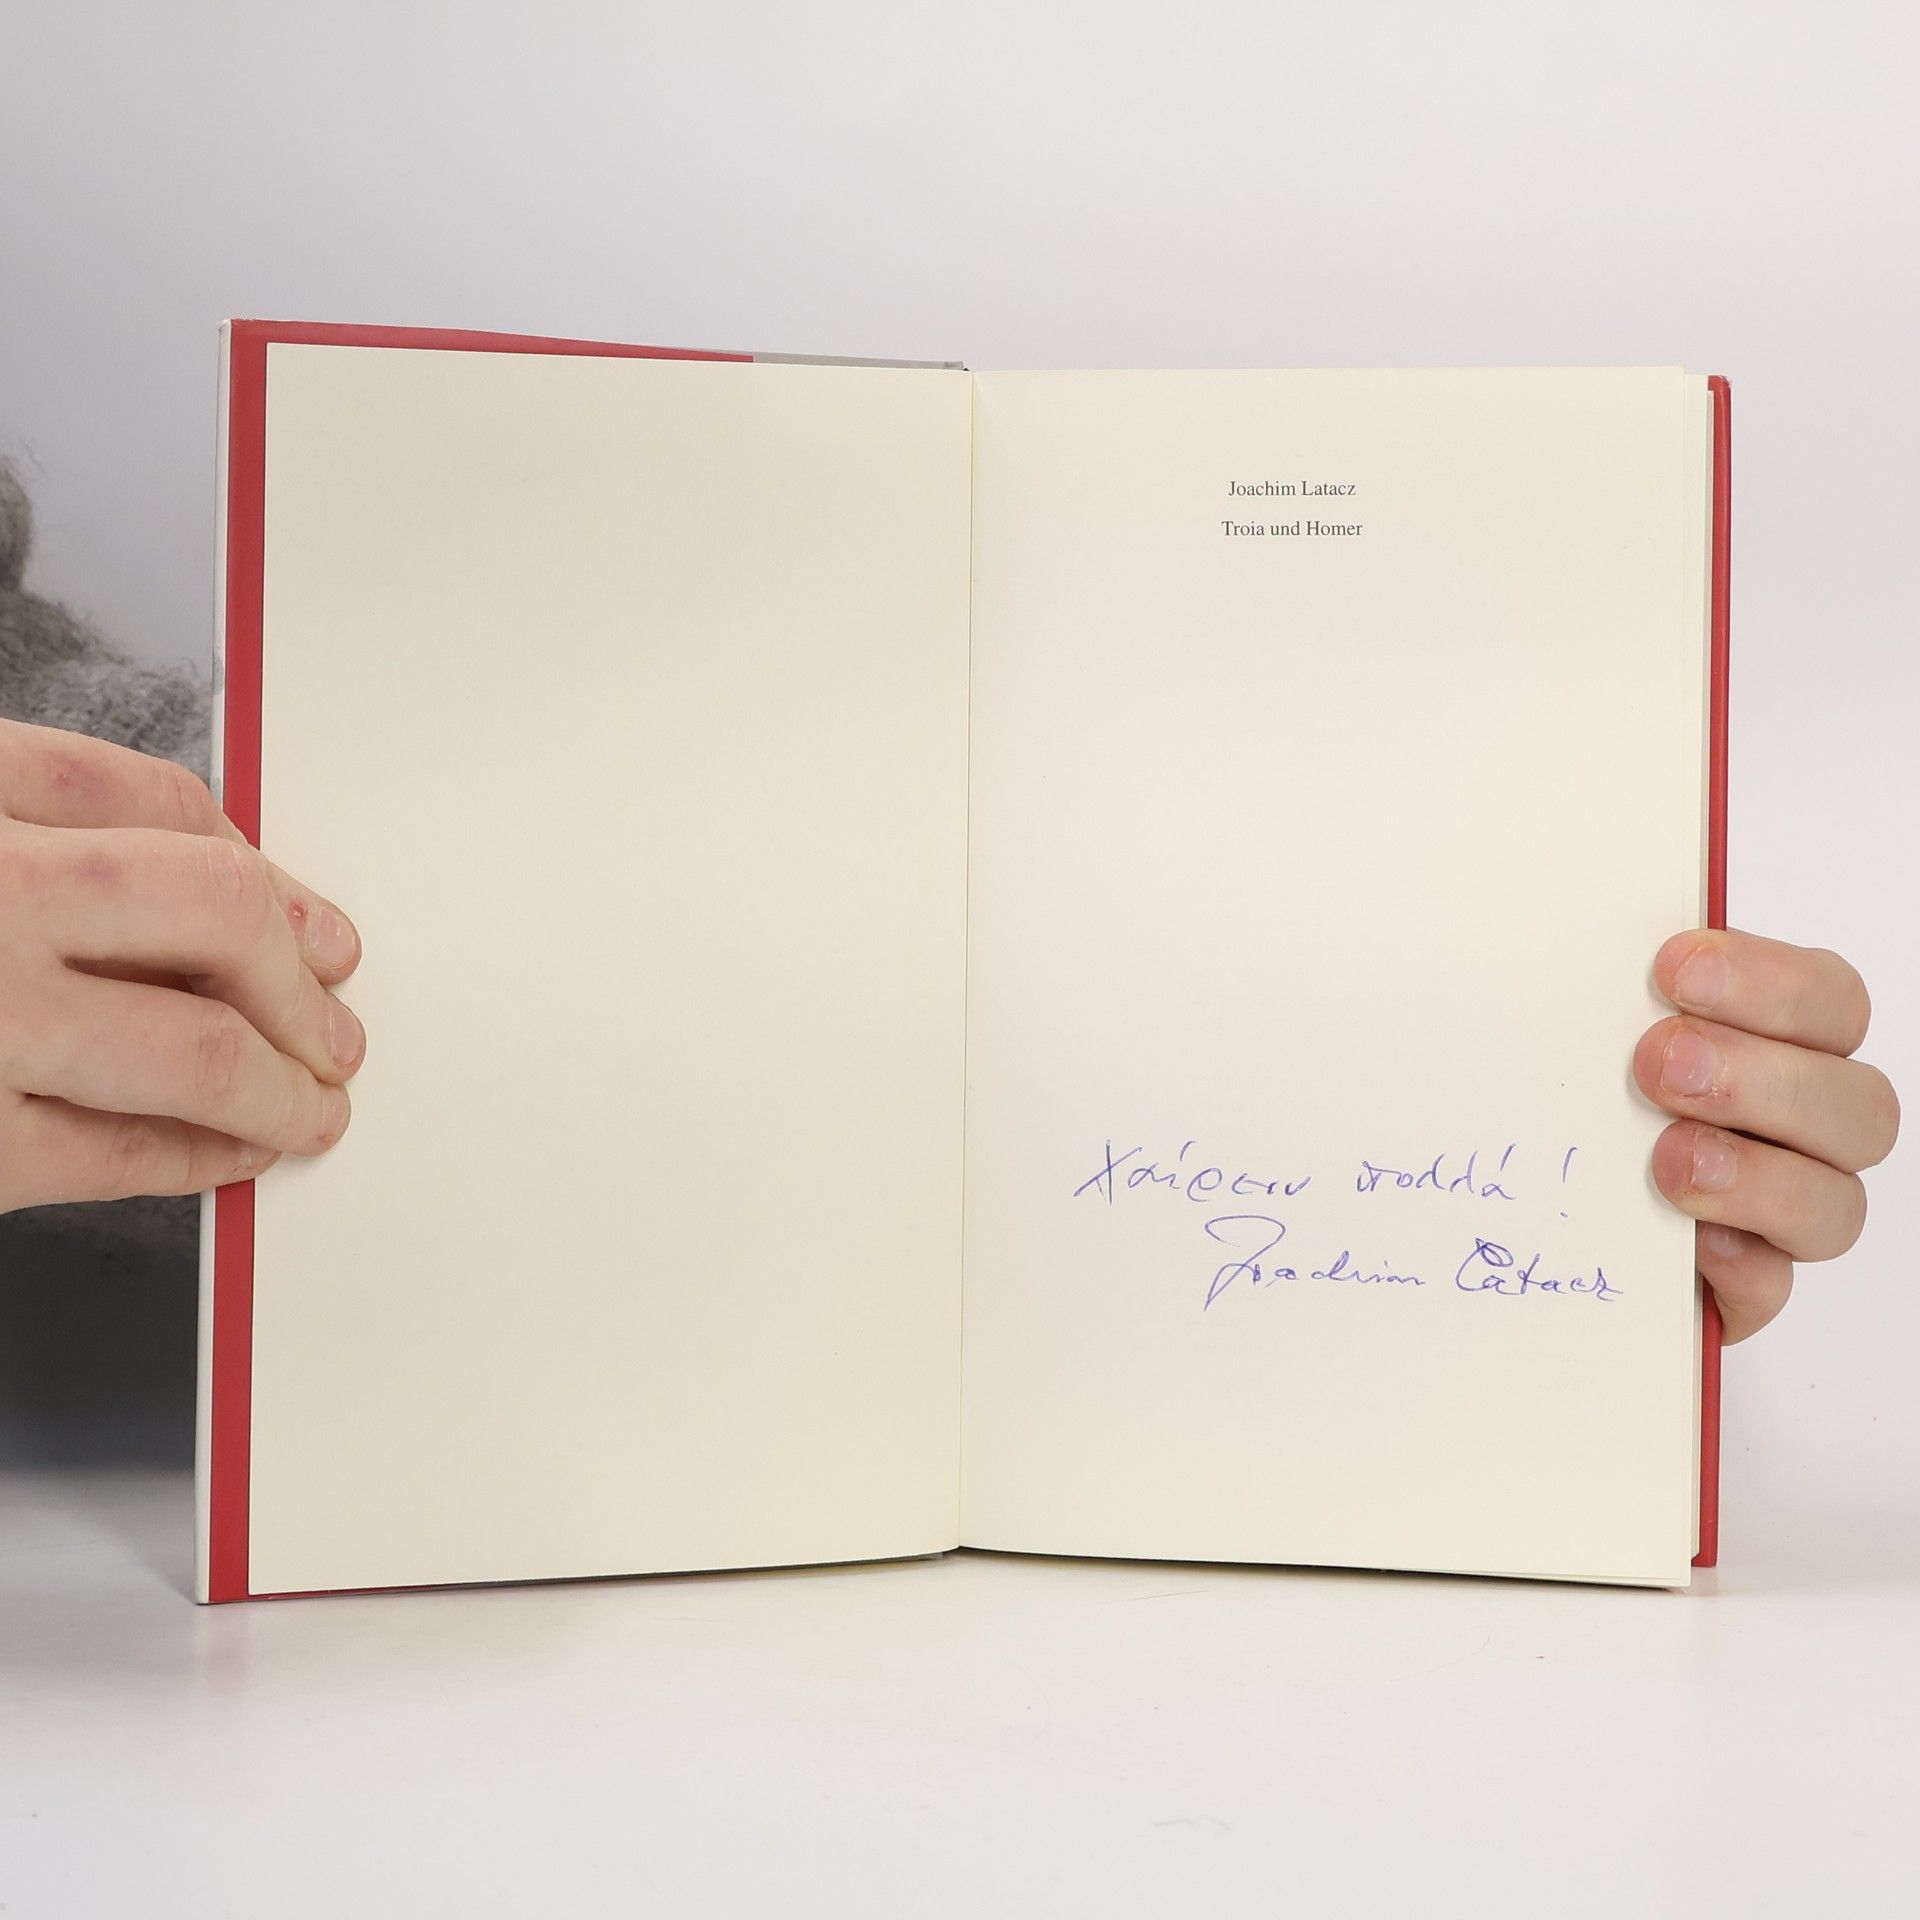 Joachim Latacz
Troia und Homer
Χαίρειν πολλά!
Joachim Latacz